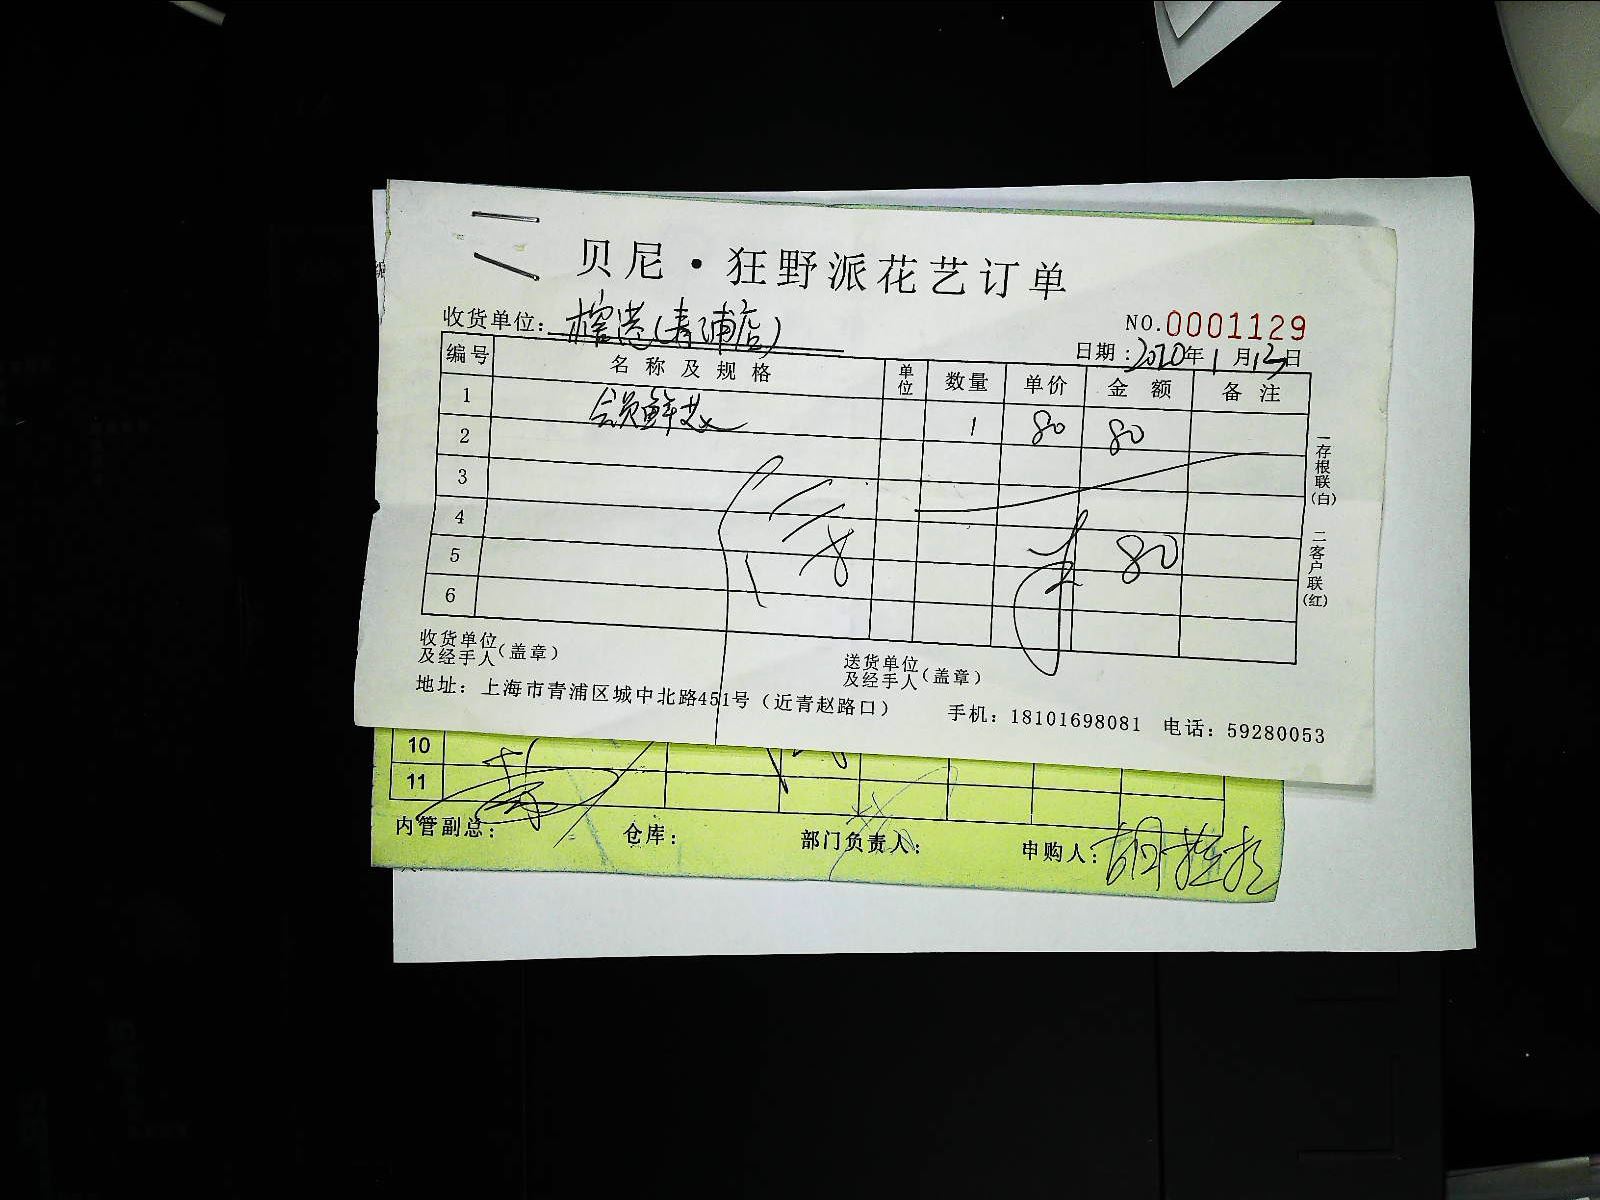 贝尼·狂野派花艺订单
收货单位：榕港(青浦店)
NO.0001129
日期：2020年1月13日
编号 名称及规格 单位 数量 单价 金额 备注
1 会员鲜花 1 80 80
2
3
4
5 80
6
一存根联(白)
二客户联(红)
收货单位及经手人(盖章)
送货单位及经手人(盖章)
地址：上海市青浦区城中北路451号（近青赵路口） 手机：18101698081 电话：59280053
10
11
内管副总： 仓库： 部门负责人： 申购人：胡